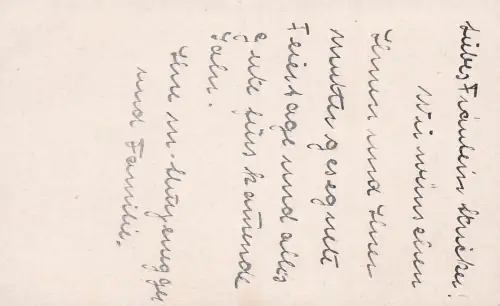 Liebes Fräulein Stricker!
Wir wünschen
Ihnen und Ihrer
Mutter gesegnete
Feiertage und alles
Gute fürs kommende
Jahr.
und Familie.